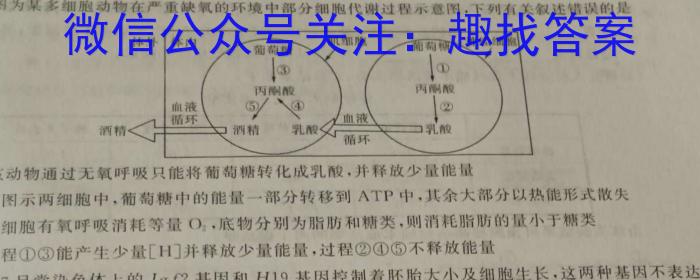 为某多细胞动物在严重缺氧的环境中部分细胞代谢过程示意图,下列有关叙述错误的是
微信公众号关注：趣找答案
葡萄糖
葡萄糖
③
①
丙酮酸
丙酮酸
⑤
④
②
血液
循环
血液
循环
酒精
酒精
乳酸
乳酸
动物通过无氧呼吸只能将葡萄糖转化成乳酸,并释放少量能量
图示两细胞中,葡萄糖中的能量一部分转移到 ATP 中,其余大部分以热能形式散失
细胞有氧呼吸消耗等量 O₂,底物分别为脂肪和糖类,则消耗脂肪的量小于糖类
程①③能产生少量[H]并释放少量能量,过程②④⑤不释放能量
号常染色体上的 Igf2 基因和 H19 基因控制着胚胎大小及细胞生长,这两种基因不表达